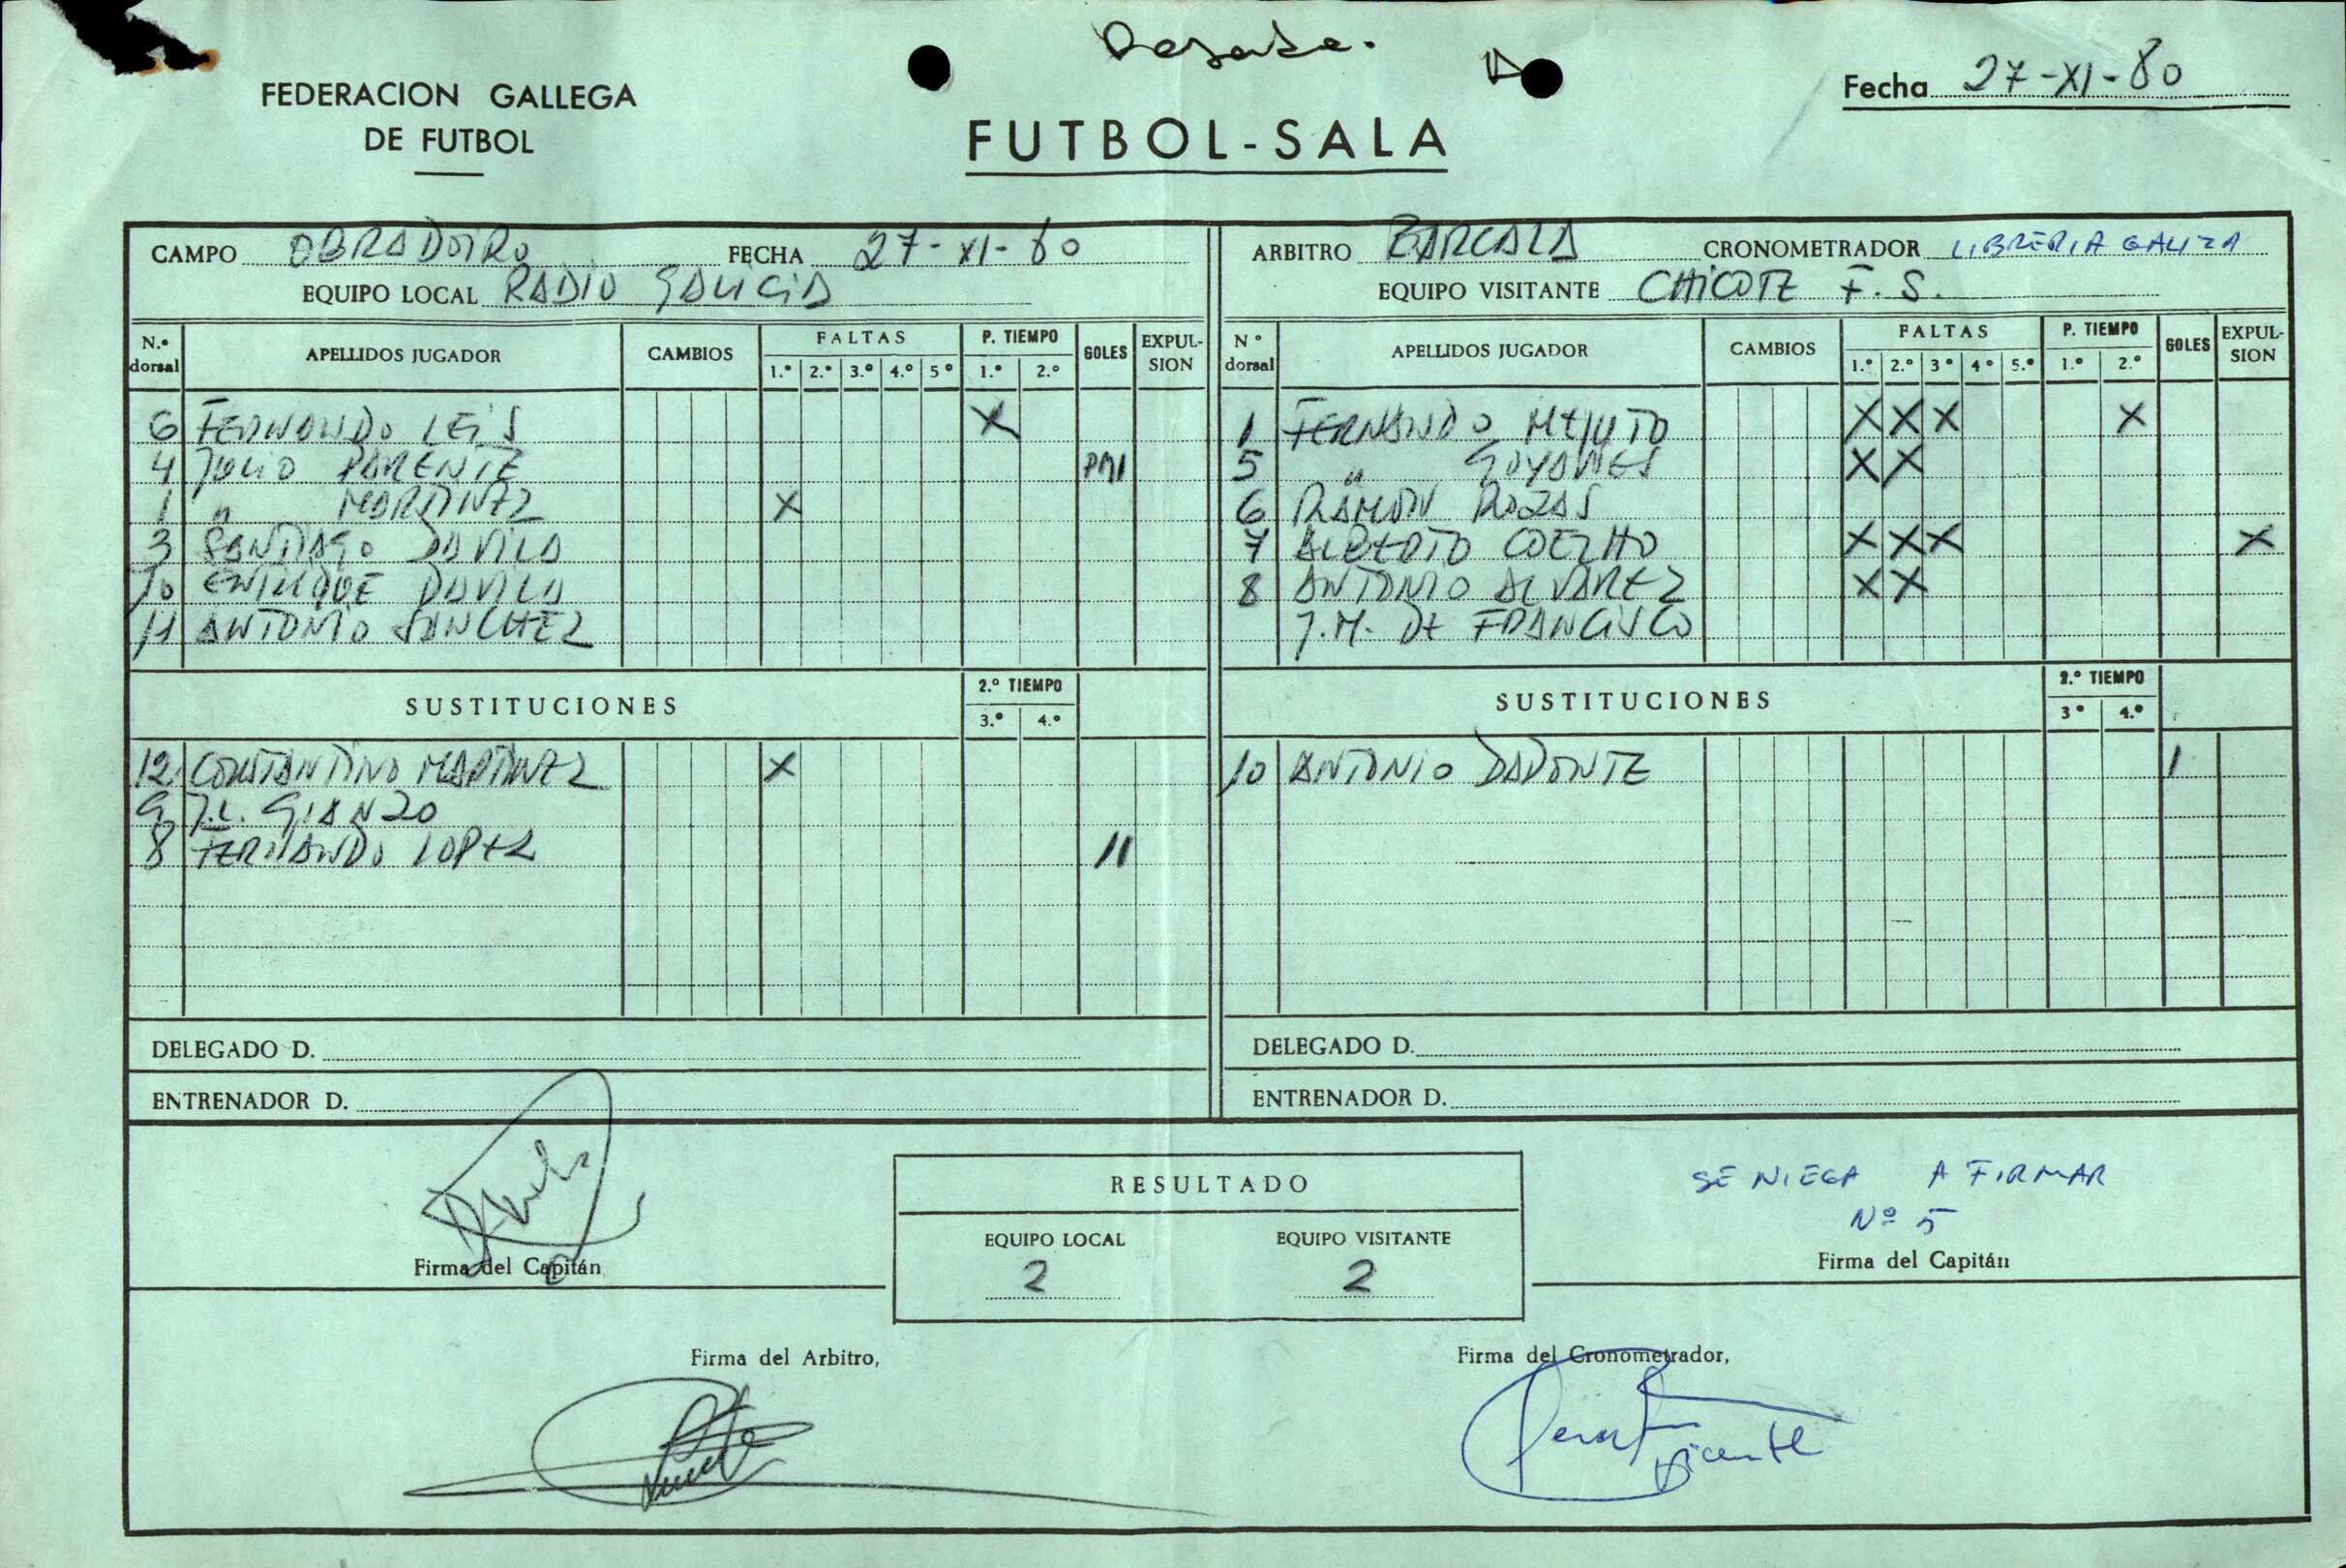 FEDERACION GALLEGA
DE FUTBOL
FUTBOL-SALA
Fecha 27-XI-80
CAMPO OBRADOIRO FECHA 27-XI-80
EQUIPO LOCAL RADIO GALICIA
N.º dorsal APELLIDOS JUGADOR CAMBIOS FALTAS 1.ª 2.ª 3.ª 4.ª 5ª P. TIEMPO 1.º 2.º GOLES EXPULSION
6 FERNANDO LEIS X
4 JULIO PARENTE
1 " MARTINEZ X
3 SANTIAGO DAVILA
10 ENRIQUE DAVILA
11 ANTONIO SANCHEZ
SUSTITUCIONES 2.º TIEMPO 3.º 4.º
12 CONSTANTINO MARTINEZ X
9 J.L. GIANZO
8 FERNANDO LOPEZ II
DELEGADO D.
ENTRENADOR D.
ARBITRO BARCALA CRONOMETRADOR LIBRERIA GALIZA
EQUIPO VISITANTE CHICOTE F. S.
Nº dorsal APELLIDOS JUGADOR CAMBIOS FALTAS 1.ª 2.ª 3ª 4ª 5.ª P. TIEMPO 1.º 2.º GOLES EXPULSION
1 FERNANDO MEJUTO X X X X
5 " GOYANES X X
6 RAMON ROZAS
7 ALBERTO COELHO X X X X
8 ANTONIO ALVAREZ X X
J.M. DE FRANCISCO
SUSTITUCIONES 2.º TIEMPO 3º 4.º
10 ANTONIO DADONTE I
DELEGADO D.
ENTRENADOR D.
Firma del Capitán
RESULTADO
EQUIPO LOCAL EQUIPO VISITANTE
2 2
SE NIEGA A FIRMAR
Nº 5
Firma del Capitán
Firma del Arbitro,
Firma del Cronometrador,
Vicente